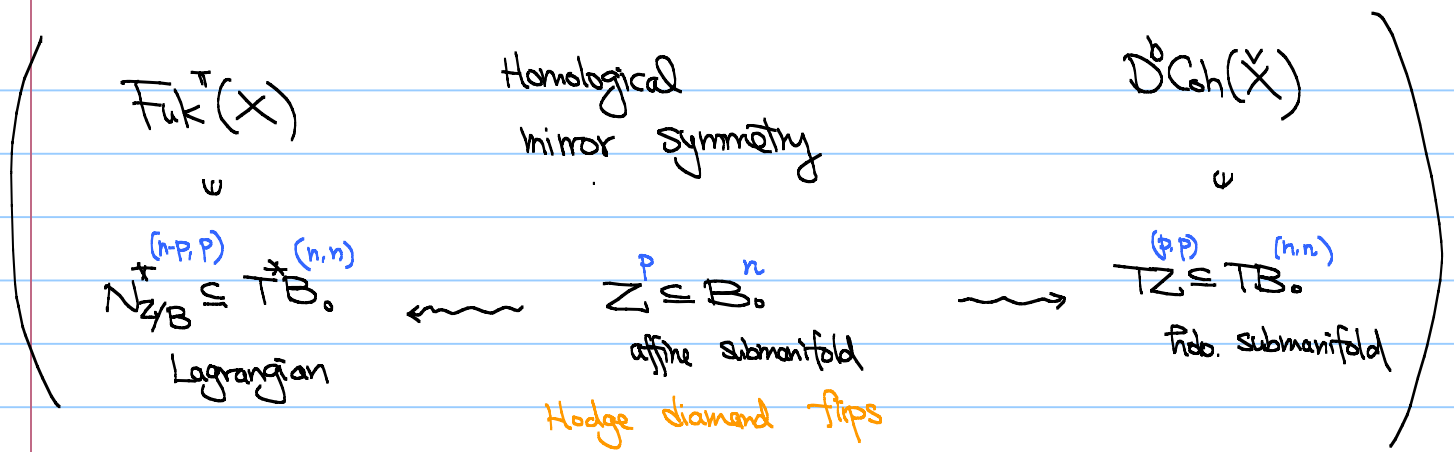 Fuk^π(X)
Homological
mirror symmetry
D^bCoh(X̌)
∈
∈
(n-p, p)
(n, n)
N*_{Z/B} ⊆ T*B₀
p
n
Z ⊆ B₀
(p, p)
(n, n)
TZ ⊆ TB₀
Lagrangian
affine submanifold
holo. submanifold
Hodge diamond flips